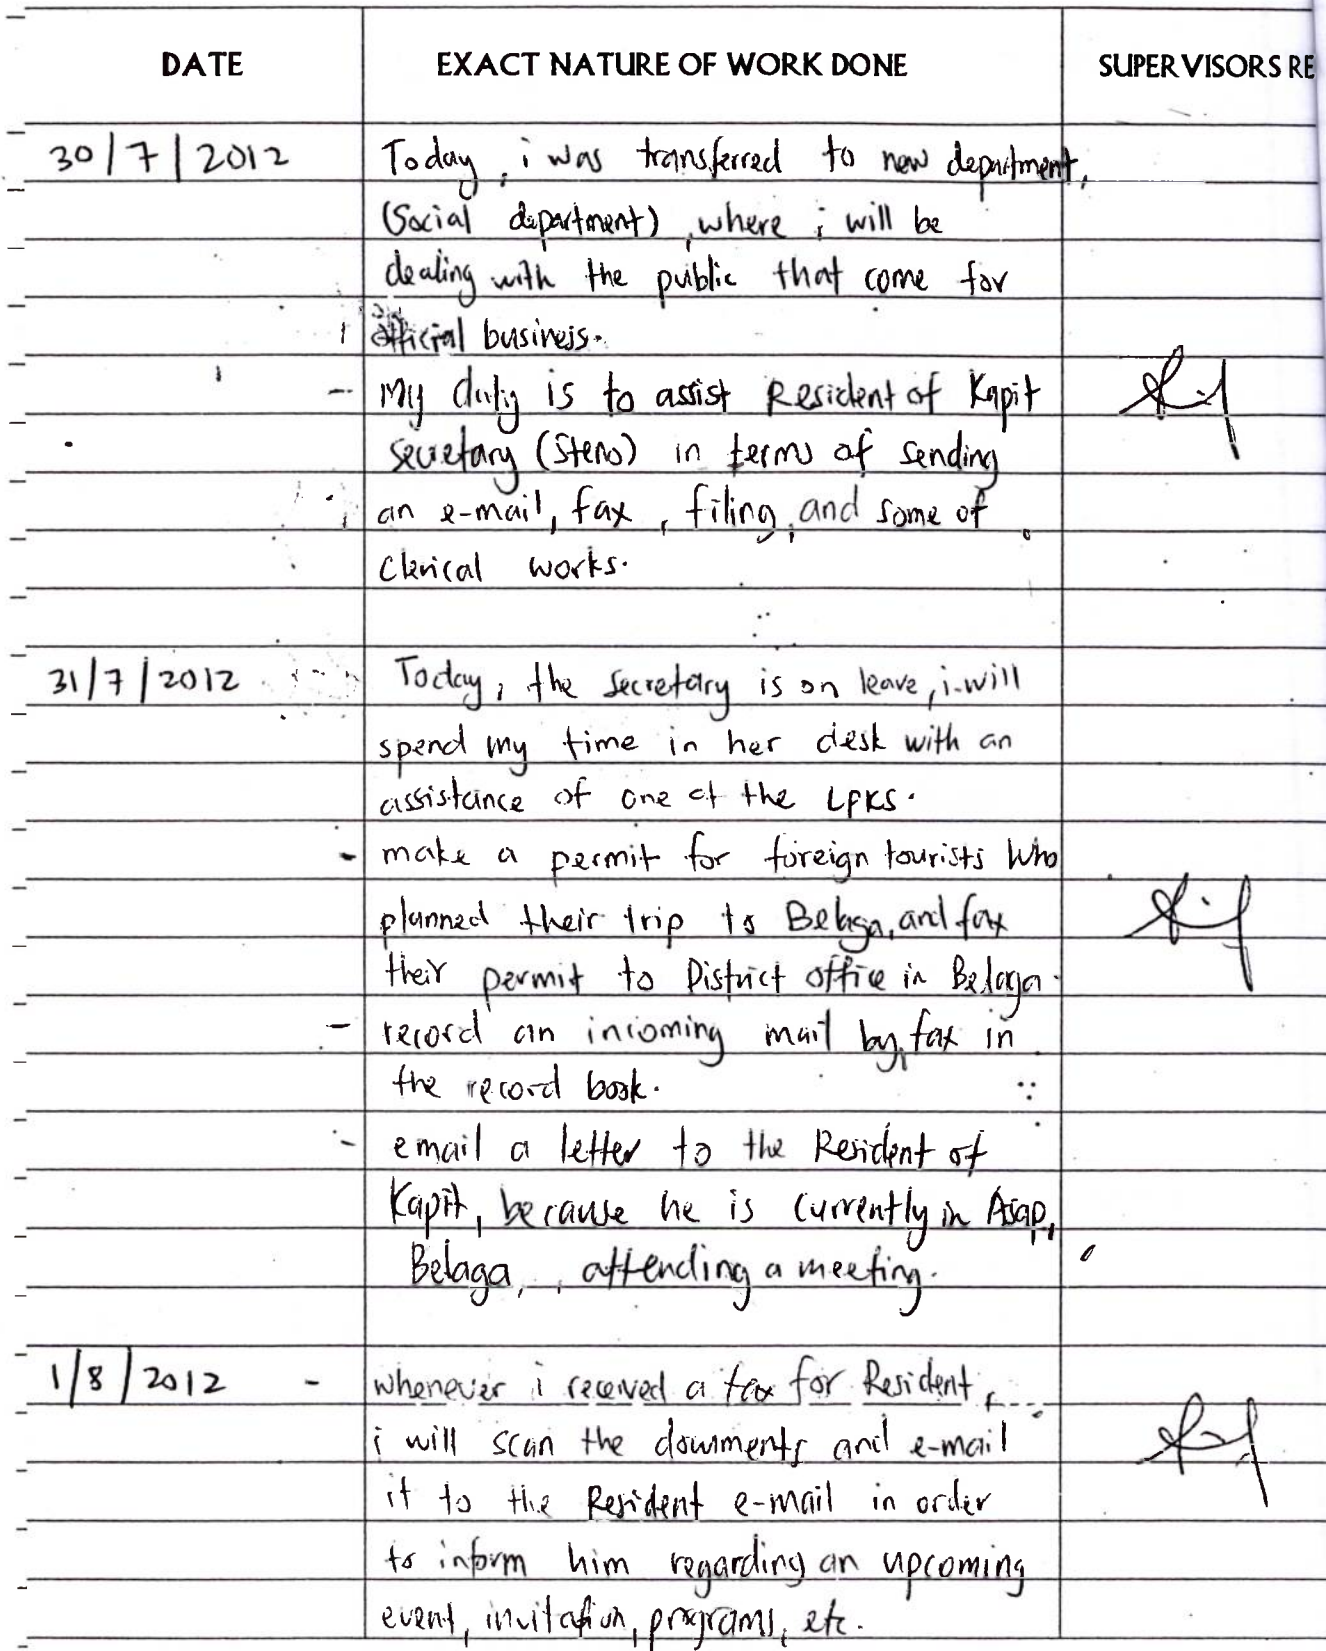 DATE EXACT NATURE OF WORK DONE SUPERVISORS RE
30/7/2012 Today, i was transferred to new department,
(Social department), where i will be
dealing with the public that come for
official business.
- My duty is to assist Resident of Kapit
secretary (Steno) in terms of sending
an e-mail, fax, filing, and some of
Clerical works.
31/7/2012 Today, the secretary is on leave, i will
spend my time in her desk with an
assistance of one of the LPKS.
- make a permit for foreign tourists who
planned their trip to Belaga, and fax
their permit to District office in Belaga.
- record an incoming mail by fax in
the record book.
- email a letter to the Resident of
Kapit, because he is currently in Asap,
Belaga, attending a meeting.
1/8/2012 - whenever i received a fax for Resident,
i will scan the documents and e-mail
it to the Resident e-mail in order
to inform him regarding an upcoming
event, invitation, programs, etc.